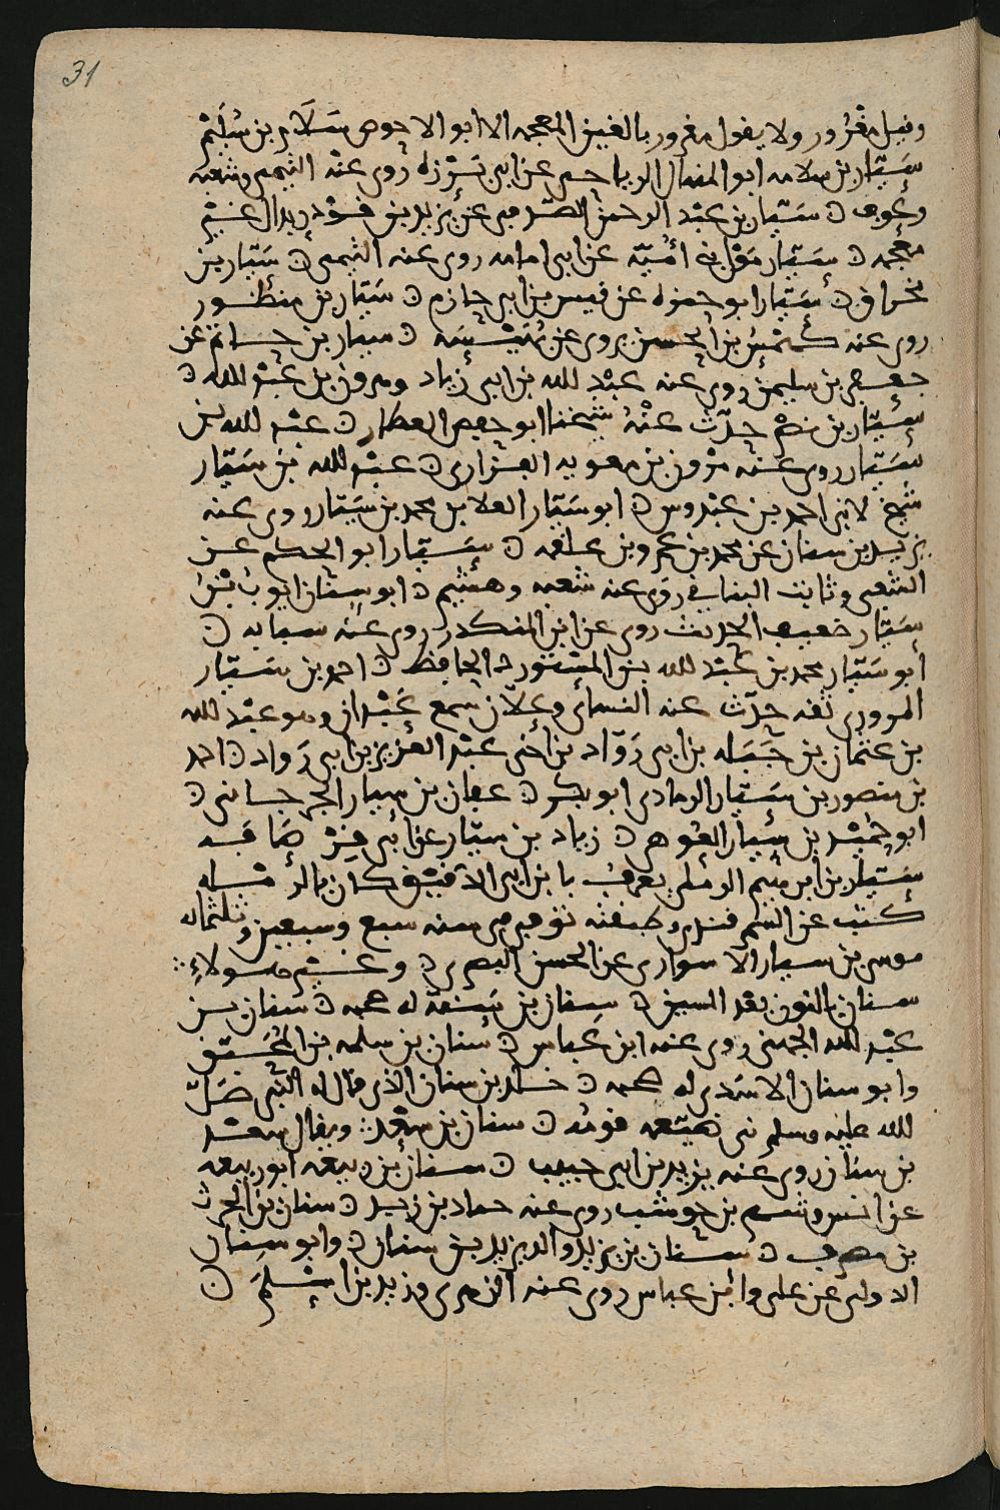 31
وقيل مغرور ولا يقول مغرور بالغين المعجمه الا ابو الاحوص سلام بن سليم
سيار بن سلامه ابو المنهال الرياحي عن ابي برزه روى عنه التيمي وشعبه
وعوف ○ سيار بن عبد الرحمن الصدفي عن يزيد بن قوذر بدال غير
معجمه ○ سيار مولى بني امية عن ابي امامه روى عنه التيمي ○ سيار بن
مخراق ○ سيار ابو حمزه عن قيس بن ابي حازم ○ سيار بن منظور
روى عنه كهمس بن الحسن يروي عن بهيسة ○ سيار بن حاتم عن
جعفر بن سليمن روى عنه عبد الله بن ابي زياد وهرون بن عبد الله ○
سيار بن نصر حدث عنه شيخنا ابو حفص العطار ○ عبد الله بن
سيار روى عنه مرون بن معويه الفزاري ○ عبد الله بن سيار
شيخ لابي احمد بن عبدوس ○ ابو سيار العلا بن محمد بن سيار روى عنه
يزيد بن سنان عن محمد بن عمرو بن علقمه ○ سيار ابو الحكم عن
الشعبي وثابت البناني روى عنه شعبه وهشيم ○ ابو سيار ايوب بن
سيار ضعيف الحديث روى عن ابن المنكدر روى عنه شبابه ○
ابو سيار محمد بن عبد الله بن المستورد الحافظ ○ احمد بن سيار
المروزي ثقه حدث عنه النسائي وعلان سمع عبدان وهو عبد الله
بن عثمان بن جبله بن ابي رواد بن اخي عبد العزيز بن ابي رواد ○ احمد
بن منصور بن سيار الرمادي ابو بكر ○ عفان بن سيار الجرجاني ○
ابو حميد بن سيار العوهي ○ زياد بن سيار عن ابي قرصافه
سيار بن ابرهيم الرملي يعرف بابن ابي الافيق كان بالرمله
كتب عن الشيوخ قبلي وطبقته توفي في سنه سبع وسبعين وثلثمائه
موسى بن سيار الاسواري عن الحسن البصري ○ وغير هولاء
سنان بالنون بعد السين ○ سنان بن سنة له صحبه ○ سنان بن
عبد الله الجهني روى عنه ابن عباس ○ سنان بن سلمه بن المحبق
وابو سنان الاسدي له صحبه ○ خالد بن سنان الذي قال له النبي صلى
الله عليه وسلم نبي ضيعه قومه ○ سنان بن سعد ويقال سعد
بن سنان روى عنه يزيد بن ابي حبيب ○ سنان بن ربيعه ابو ربيعه
عن انس وشهر بن حوشب روى عنه حماد بن زيد ○ سنان بن الحرث
بن مصرف ○ سنان بن يزيد والد يزيد بن سنان ○ وابو سنان
الدولي عن علي وابن عباس روى عنه الزهري وزيد بن اسلم ○